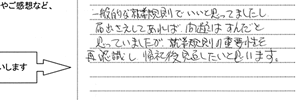 やご感想など、
一般的な就業規則でいいと思ってましたし
届出さえしてあれば、問題はまんだと
思っていましたが、就業規則の重要性を
再認識し、帰社後見直したいと思います。
いします